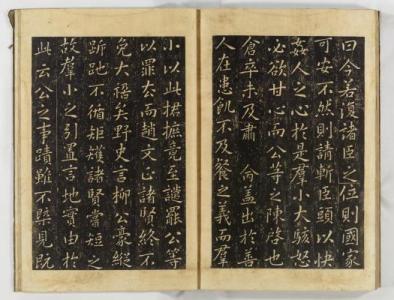 曰今若復諸臣之位則國家
可安不然則請斬臣頭以快
姦人之心於是羣小大駭怒
必欲甘心而公等之陳啓也
倉卒未及肅 俞盖出於善
人在患飢不及餐之義而羣
小以此捃摭竟至譴罷公等
以罪去而趙文正諸賢終不
免大禍矣野史言柳公豪縱
跅弛不循矩矱諸賢嘗短之
故羣小之引置言地實由於
此云公之事蹟雖不槩見既